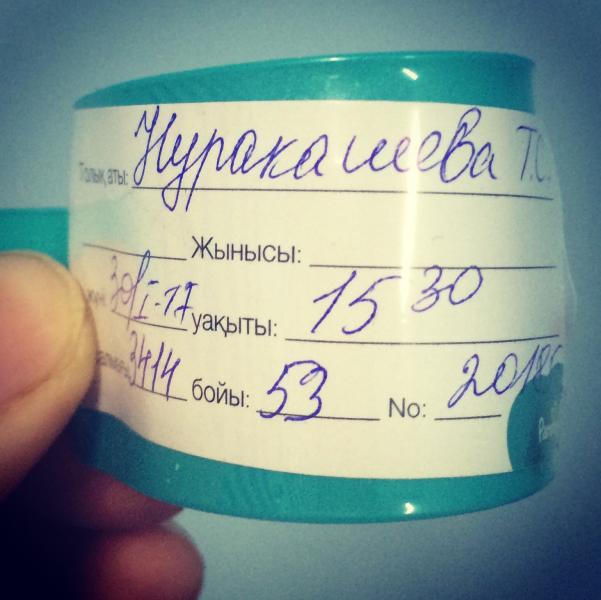 Толық аты: Нуракашева Т.С.
Жынысы:
30/I-17 уақыты: 15 30
3414 бойы: 53 No: